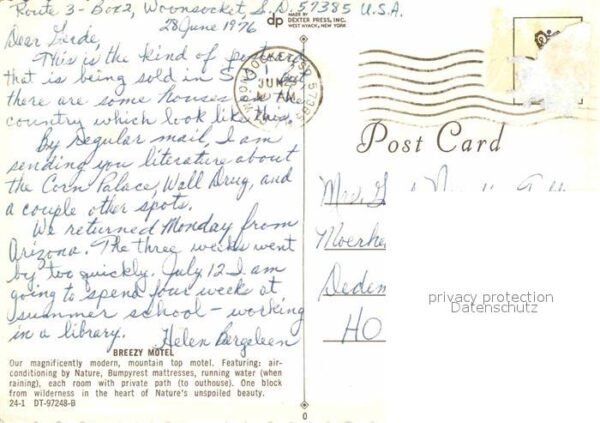 Route 3 - Box 2, Woonsocket, S.D. 57385 U.S.A.
28 June 1976
dp MADE BY
DEXTER PRESS, INC.
WEST NYACK, NEW YORK
Dear Gerde,
This is the kind of postcard
that is being sold in S.D. but
there are some houses in the
country which look like this.
By regular mail, I am
sending you literature about
the Corn Palace, Wall Drug, and
a couple other spots.
We returned Monday from
Arizona. The three weeks went
by too quickly. July 12 I am
going to spend four weeks at
summer school - working
in a library. Helen Bergeleen
BREEZY MOTEL
Our magnificently modern, mountain top motel. Featuring: air-
conditioning by Nature, Bumpyrest mattresses, running water (when
raining), each room with private path (to outhouse). One block
from wilderness in the heart of Nature's unspoiled beauty.
24-1 DT-97248-B
WOONSOCKET SD 57385
JUN
Post Card
Mrs.
Moerke
Dedem
HO
privacy protection
Datenschutz